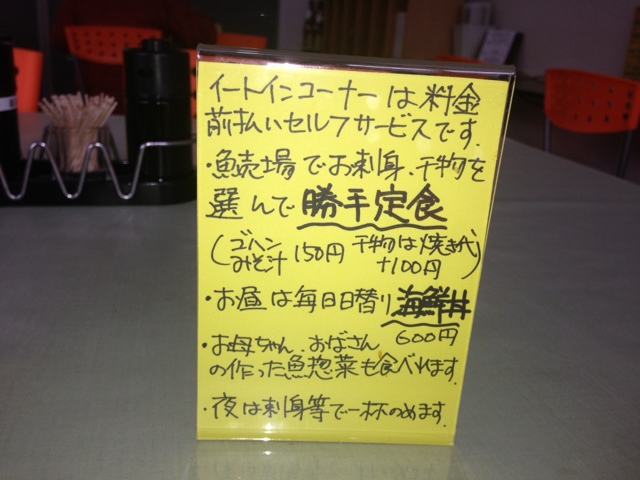 イートインコーナーは料金
前払いセルフサービスです.
・魚売場でお刺身、干物を
選んで勝手定食
(ゴハン みそ汁 150円 干物は焼き代 +100円)
・お昼は毎日日替り海鮮丼
600円
・お母ちゃん、おばさん
の作った魚惣菜も食べれます.
・夜は刺身等で一杯のめます.